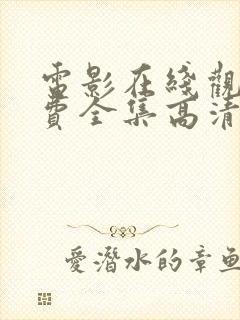 電影在綫觀
費全集高清
愛潛水的章魚